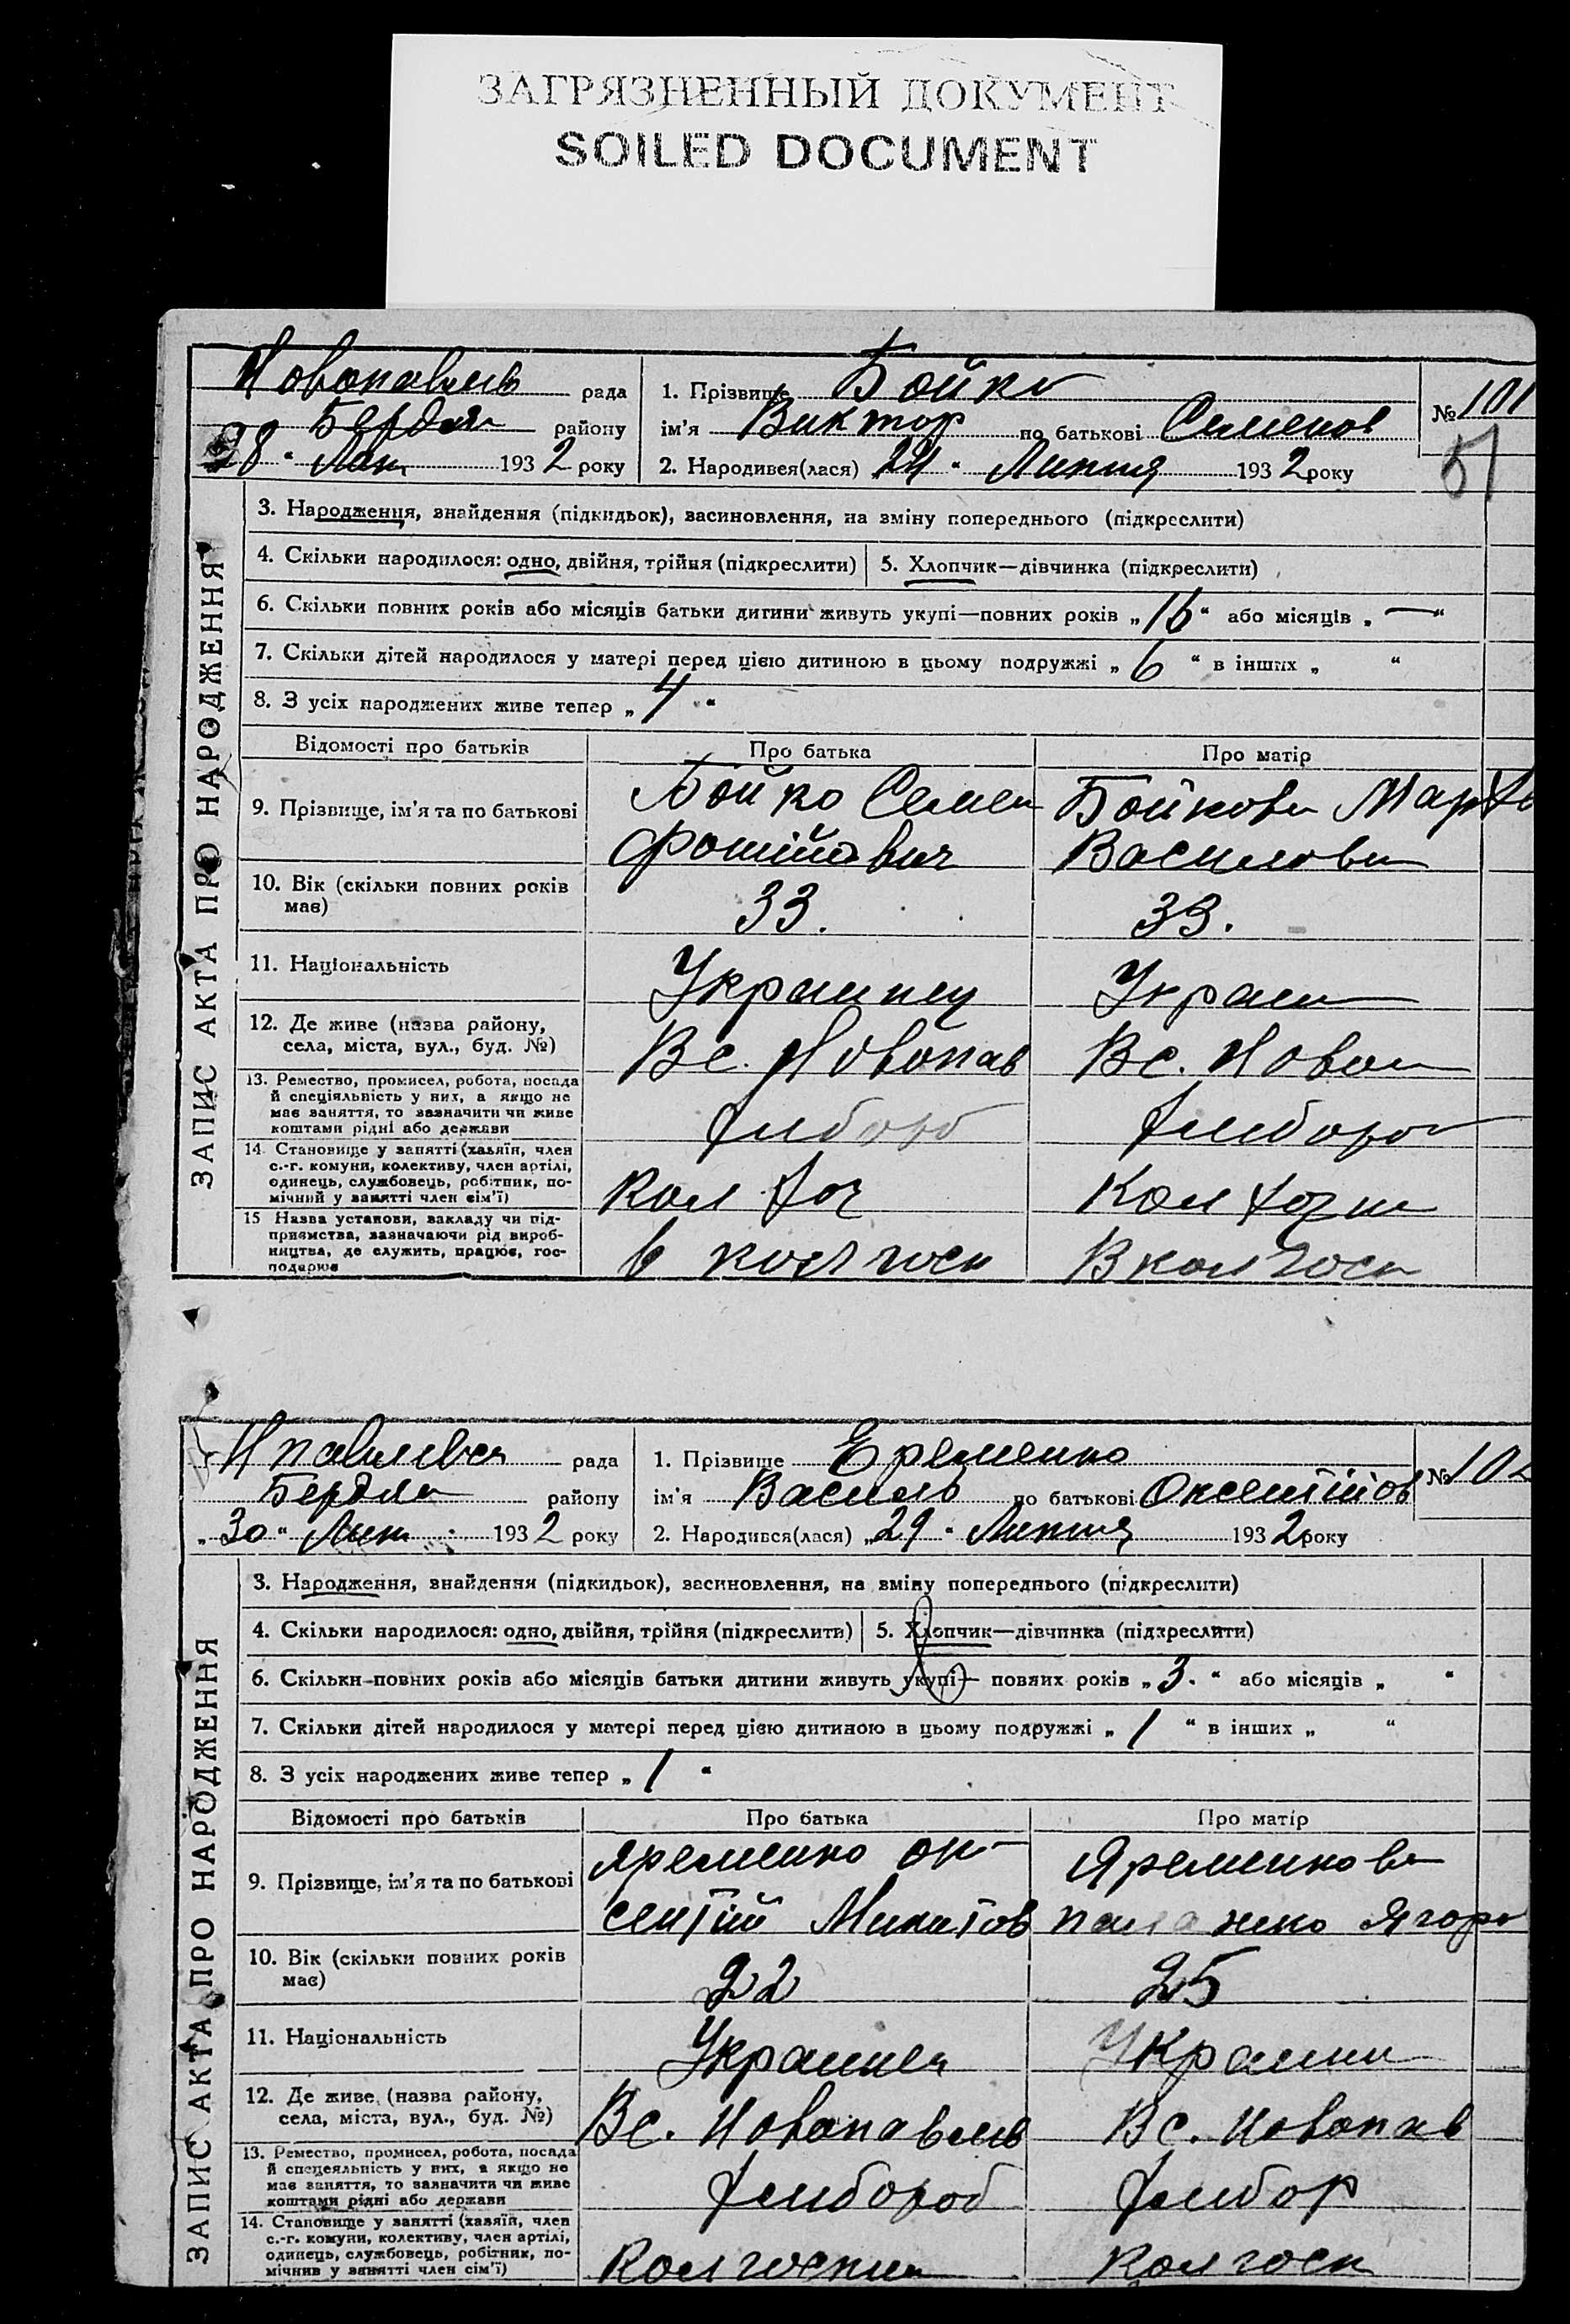 ЗАГРЯЗНЕННЫЙ ДОКУМЕНТ
SOILED DOCUMENT
рада
Бердян району
28 " Лип 1932 року
1. Прізвище Бойко
ім'я Виктор по батькові Семенов
2. Народився(лася) 24 " Липня 1932 року
№ 101
51
ЗАПИС АКТА ПРО НАРОДЖЕННЯ
3. Народження, знайдення (підкидьок), засиновлення, на зміну попереднього (підкреслити)
4. Скільки народилося: одно, двійня, трійня (підкреслити)
5. Хлопчик—дівчинка (підкреслити)
6. Скільки повних років або місяців батьки дитини живуть укупі—повних років „16" або місяців „—"
7. Скільки дітей народилося у матері перед цією дитиною в цьому подружжі „6" в інших „ "
8. З усіх народжених живе тепер „4"
Відомості про батьків
Про батька
Про матір
9. Прізвище, ім'я та по батькові
Бойко Семен
Бойкова
10. Вік (скільки повних років
має)
33.
33.
11. Національність
12. Де живе (назва району,
села, міста, вул., буд. №)
Вс. Новопав
Вс. Новоп
13. Ремество, промисел, робота, посада
й спеціяльність у них, а якщо не
має заняття, то зазначити чи живе
коштами рідні або держави
14. Становище у занятті (хазяїн, член
с.-г. комуни, колективу, член артілі,
одинець, службовець, робітник, по-
мічний у занятті член сім'ї)
15 Назва установи, закладу чи під-
приємства, зазначаючи рід вироб-
ництва, де служить, працює, гос-
подарює
в колгосп
В колгосп
рада
Бердян району
„30" Лип 1932 року
1. Прізвище Еременко
ім'я Василь по батькові Оксентійов
2. Народився(лася) „29" Липня 1932 року
№ 102
ЗАПИС АКТА ПРО НАРОДЖЕННЯ
3. Народження, знайдення (підкидьок), засиновлення, на зміну попереднього (підкреслити)
4. Скільки народилося: одно, двійня, трійня (підкреслити)
5. Хлопчик—дівчинка (підкреслити)
6. Скільки повних років або місяців батьки дитини живуть укупі— повних років „3." або місяців „ "
7. Скільки дітей народилося у матері перед цією дитиною в цьому подружжі „1" в інших „ "
8. З усіх народжених живе тепер „1"
Відомості про батьків
Про батька
Про матір
9. Прізвище, ім'я та по батькові
Яременко Ок-
сентій Микитов
Яременкова
10. Вік (скільки повних років
має)
22
25
11. Національність
12. Де живе (назва району,
села, міста, вул., буд. №)
Вс. Новопавлів
Вс. Новопав
13. Ремество, промисел, робота, посада
й спецеяльність у них, а якщо не
має заняття, то зазначити чи живе
коштами рідні або держави
14. Становище у занятті (хазяїн, член
с.-г. комуни, колективу, член артілі,
одинець, службовець, робітник, по-
мічнив у занятті член сім'ї)
Колгосп